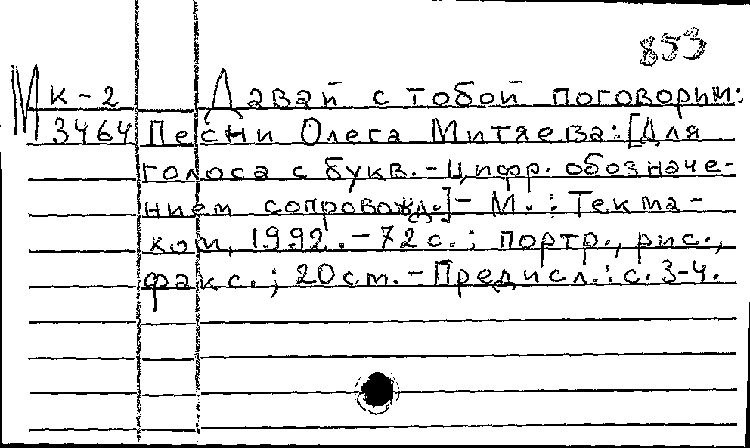 853
Мк-2 Давай с тобой поговорим:
3464 Песни Олега Митяева: [Для
голоса с букв.-цифр. обозначе-
нием сопровожд.] - М.: Текма-
ком, 1992. - 72 с.; портр., рис.,
факс.; 20 см. - Предисл.: с. 3-4.